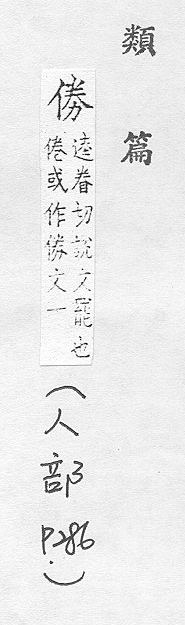 類篇
逵眷切說文罷也
倦或作文一
（人部 P286.）